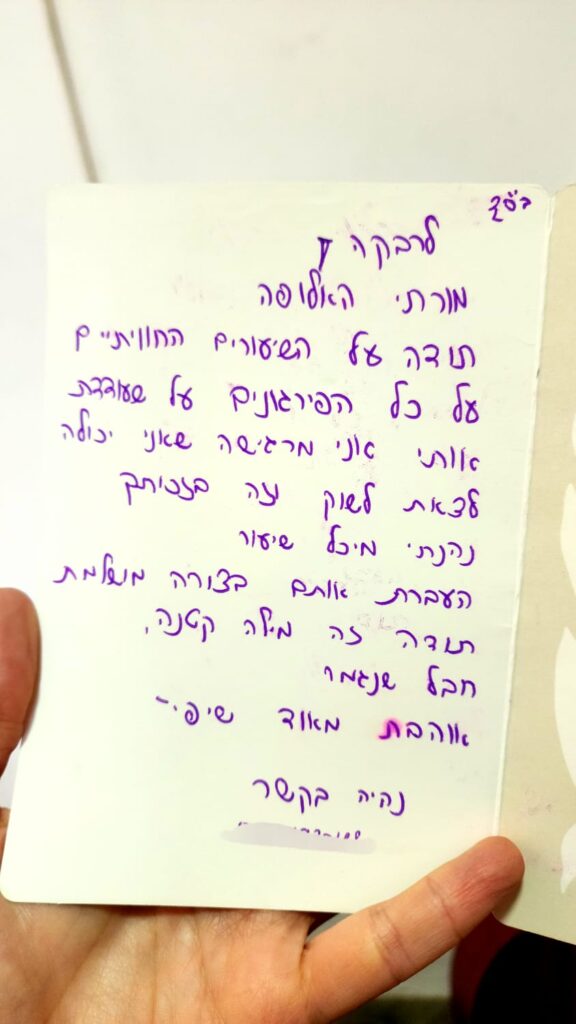 בס"ד
לרבקה
מורתי האלופה
תודה על השיעורים החוויתיים
על כל הפירגונים על שעודדת
אותי אני מרגישה שאני יכולה
לצאת לשוק וזה בזכותך
נהנתי מיכל שיעור
העברת אותם בצורה מושלמת
תודה זה מילה קטנה.
חבל שנגמר
אוהבת מאוד שיפי-
נהיה בקשר